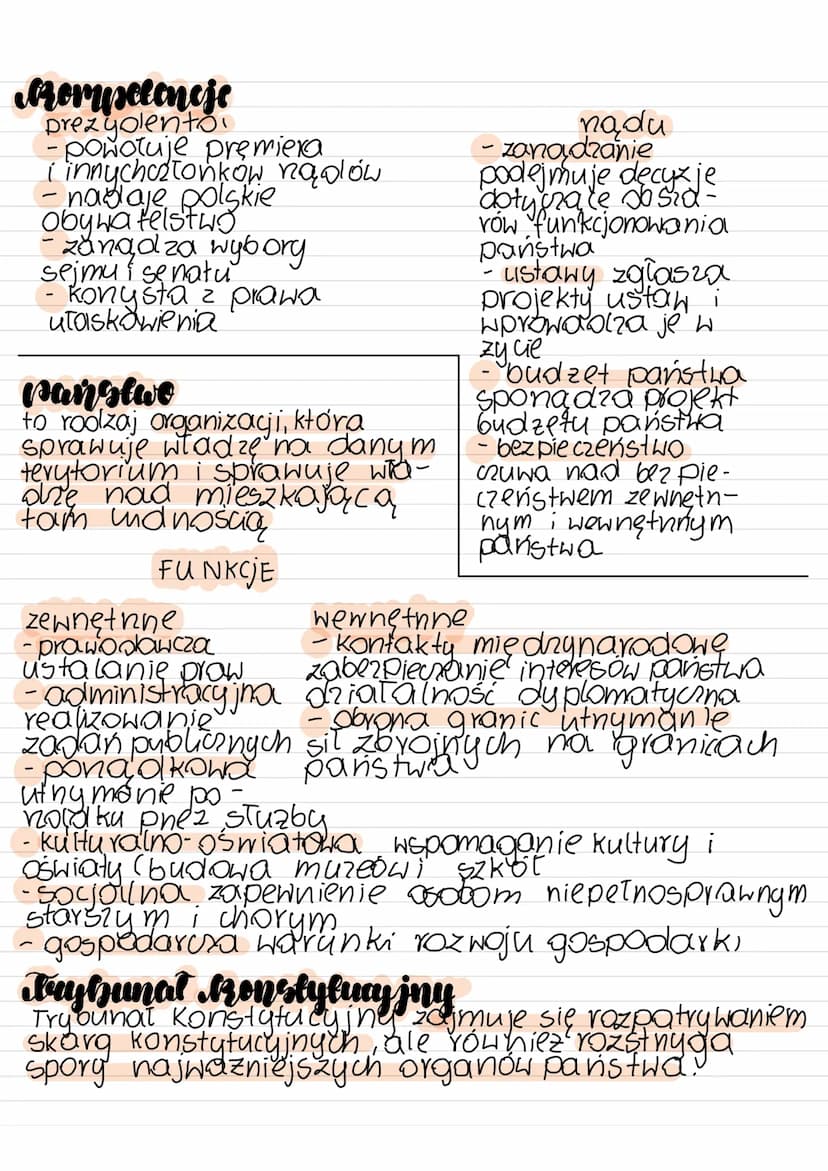 Kompetencje
prezydenta:
- powołuje premiera
i innych członków rządów
- nadaje polskie
obywatelstwo
- zarządza wybory
sejmu i senatu
- korzysta z prawa
ułaskawienia
rządu
- zarządzanie
podejmuje decyzje
dotyczące obsza-
rów funkcjonowania
państwa
- ustawy zgłasza
projekty ustaw i
wprowadza je w
życie
- budżet państwa
sporządza projekt
budżetu państwa
- bezpieczeństwo
czuwa nad bezpie-
czeństwem zewnętrz-
nym i wewnętrznym
państwa
państwo
to rodzaj organizacji, która
sprawuje władzę na danym
terytorium i sprawuje wła-
dzę nad mieszkającą
tam ludnością
FUNKCJE
zewnętrzne
- prawodawcza
ustalanie praw
- administracyjna
realizowanie
zadań publicznych
- porządkowa
utrzymanie po-
rządku przez służby
- kulturalno-oświatowa wspomaganie kultury i
oświaty (budowa muzeów i szkół
- socjalna zapewnienie osobom niepełnosprawnym
starszym i chorym
- gospodarcza warunki rozwoju gospodarki
wewnętrzne
- kontakty międzynarodowe
zabezpieczanie interesów państwa
działalność dyplomatyczna
- obrona granic utrzymanie
sił zbrojnych na granicach
państwa
Trybunał Konstytucyjny
Trybunał Konstytucyjny zajmuje się rozpatrywaniem
skarg konstytucyjnych, ale również rozstrzyga
spory najważniejszych organów państwa.